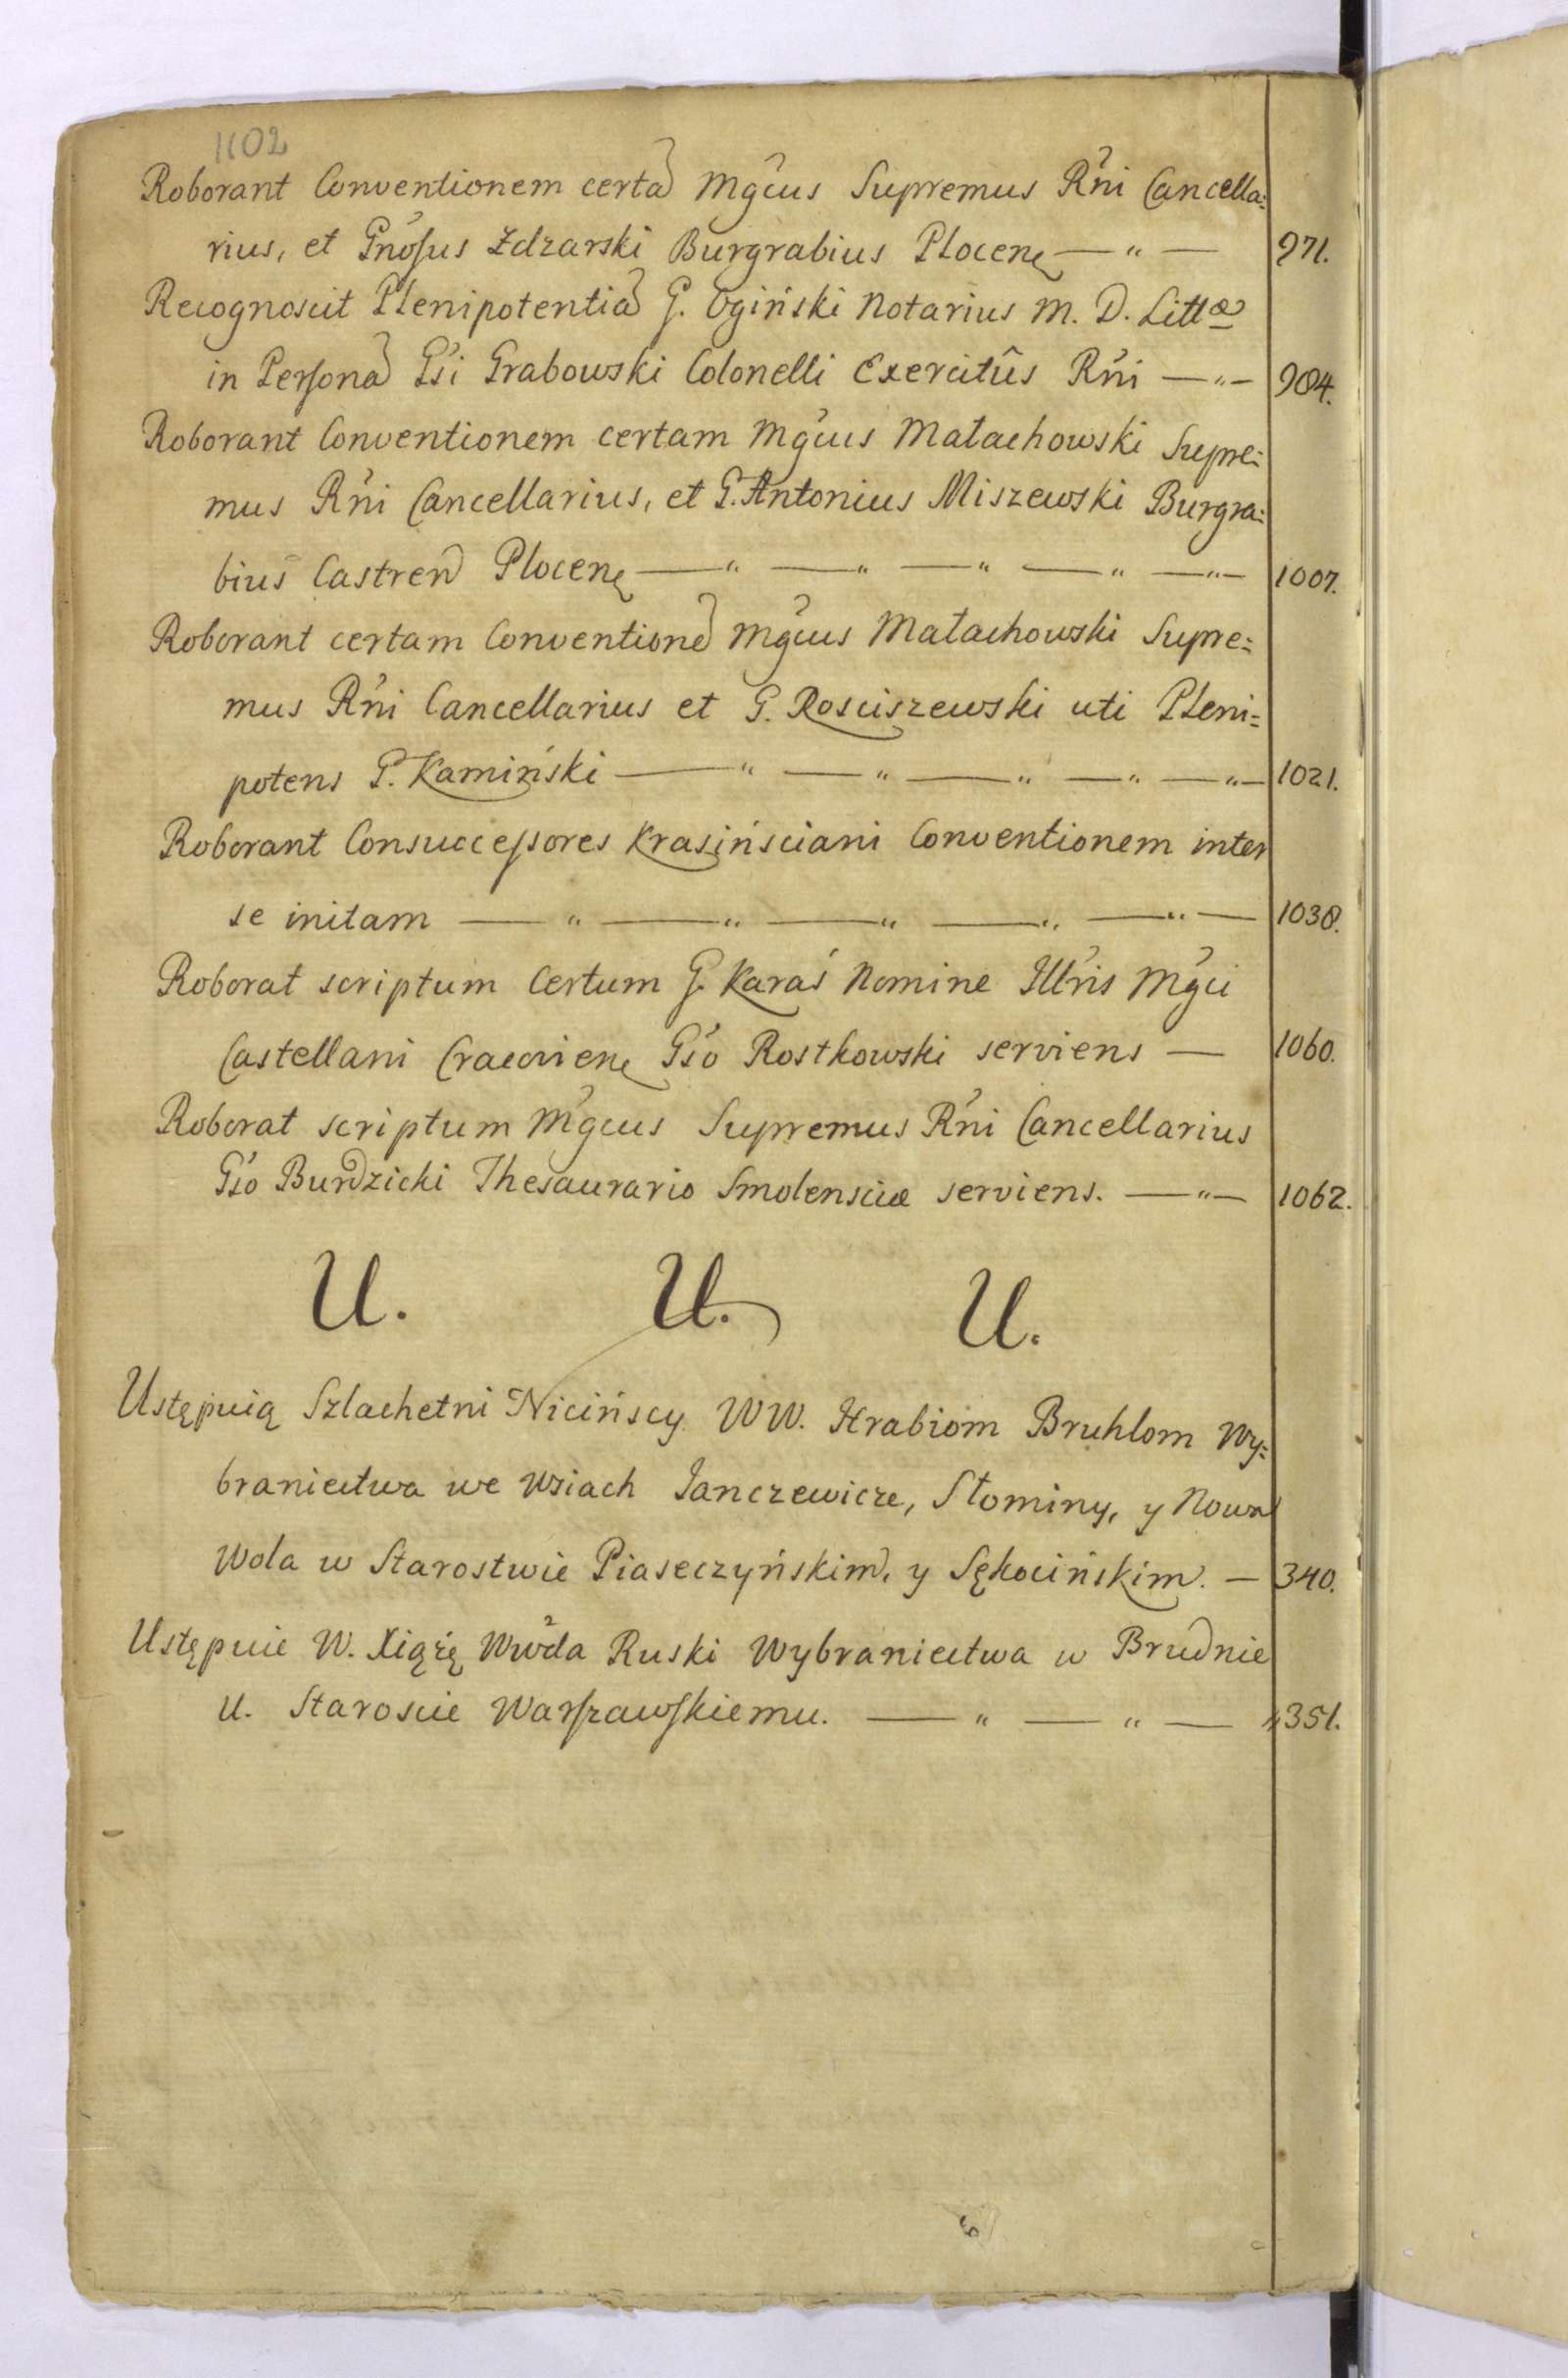 1102
Roborant Conventionem certã Mgcus Supremus Rñi Cancella:
rius, et Gnosus Zdzarski Burgrabius Plocenę — „ — 971.
Recognoscit Plenipotentiã G. Ogiński Notarius M. D. Littæ
in Personã Gsi Grabowski Colonelli Exercitûs Rñi — „ — 984.
Roborant Conventionem certam Mgcus Małachowski Supre:
mus Rñi Cancellarius, et G. Antonius Miszewski Burgra:
bius Castren Plocenę — „ — „ — „ — „ — „ — 1007.
Roborant certam Conventionẽ Mgcus Małachowski Supre:
mus Rñi Cancellarius et G. Rosciszewski uti Pleni:
potens G. Kamiński — „ — „ — „ — „ — „ — 1021.
Roborant Consuccessores Krasińsciani Conventionem inter
se initam — „ — „ — „ — „ — „ — 1038.
Roborat scriptum Certum G. Karaś Nomine Illris Mgci
Castellani Cracovienę Gso Rostkowski serviens — 1060.
Roborat scriptum Mgcus Supremus Rñi Cancellarius
Gso Burdzicki Thesaurario Smolensciæ serviens. — „ — 1062.
U. U. U.
Ustępuią Szlachetni Nicińscy WW. Hrabiom Bruhlom Wy:
braniectwa we Wsiach Janczewicze, Słominy, y Nowa
Wola w Starostwie Piaseczyńskim, y Sękocińskim. — 340.
Ustępuie W. Xiąźę Wwda Ruski Wybraniectwa w Brudnie
U. Staroscie Warszawskiemu. — „ — „ — „ 351.